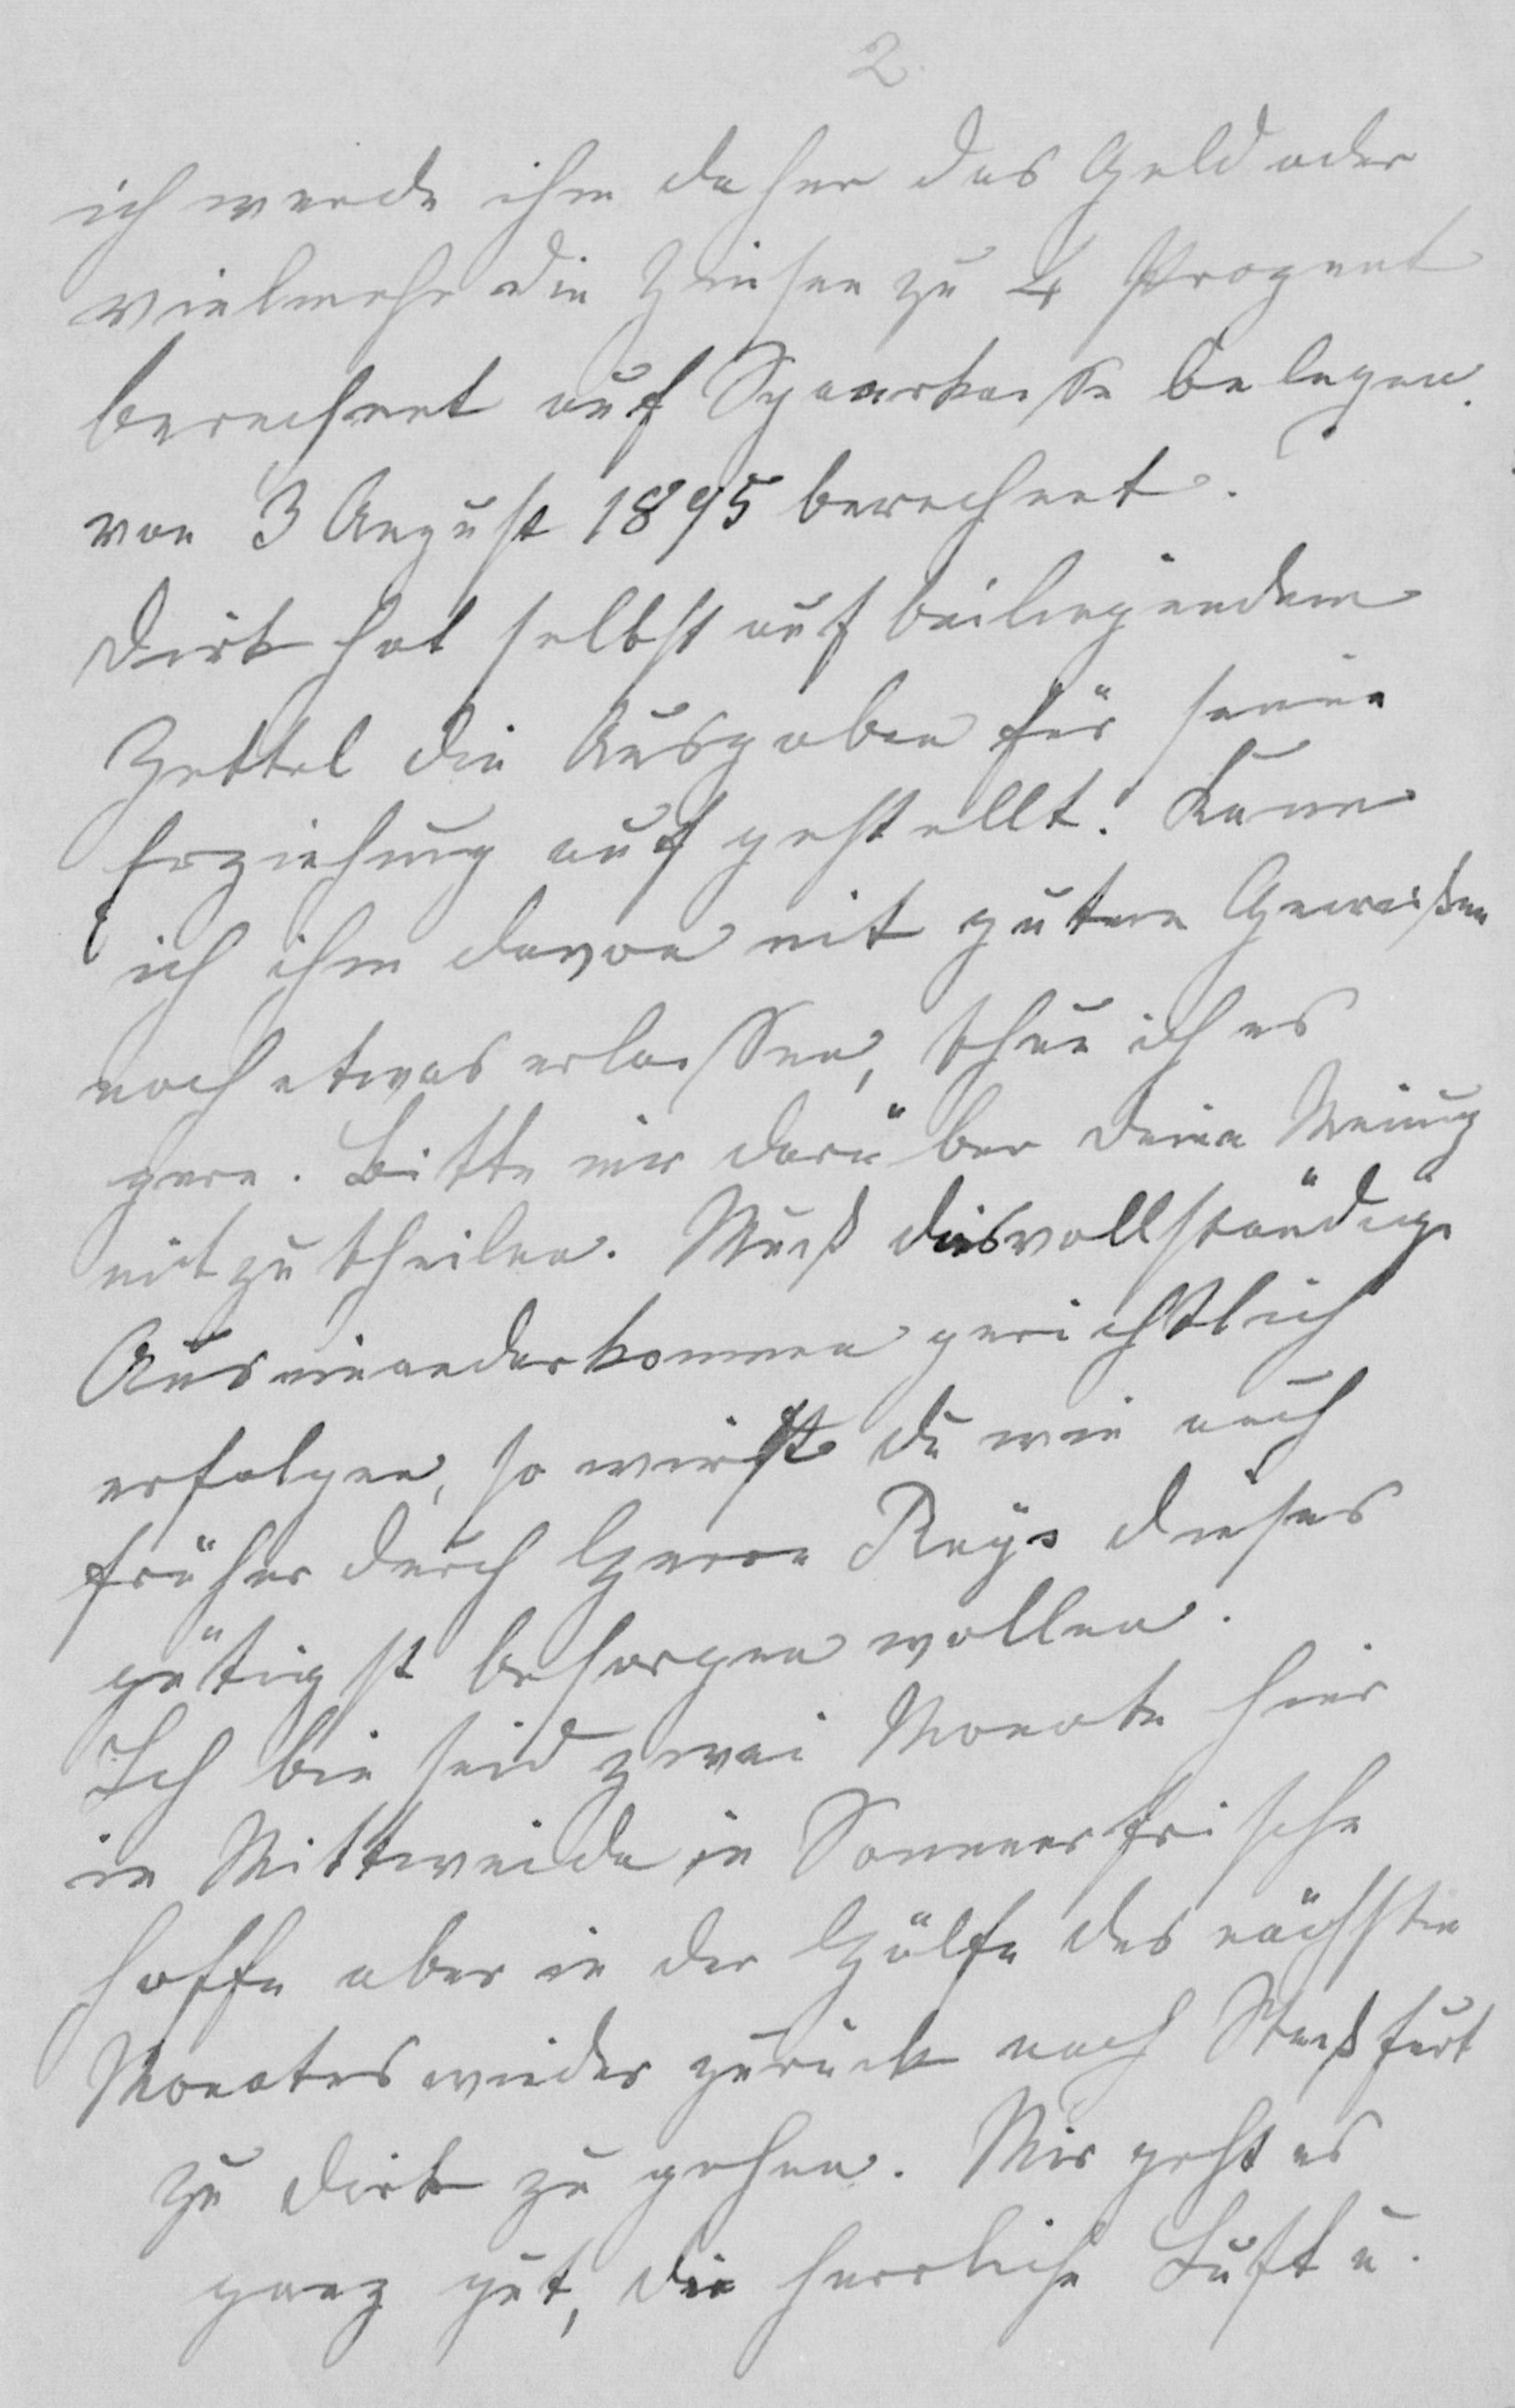 2.
ich werde ihm daher das Geld oder
vielmehr die Zinsen zu 4 Prozent
berechnet auf Sparkasse belegen.
von 3 August 1895 berechnet.
Dirk hat selbst auf beiliegendem
Zettel die Ausgaben für seine
Erziehung aufgestellt. Kann
ich ihm davon mit gutem Gewißen
noch etwas erlassen, thue ich es
gern. Bitte mir darüber deine Meinug
mitzutheilen. Muß dies vollständige
Auseinanderkommen gerichtlich
erfolgen, so wirst du wie auch
früher durch Herrn Reys dieses
gütigst besorgen wollen.
Ich bin seid zwei Monate hier
in Mittweida in Sommerfrische
hoffe aber in der Hälfte des nächsten
Monates wieder zurück nach Staßfurt
zu Dirk zu gehen. Mir geht es
ganz gut, die herrliche Luft u.